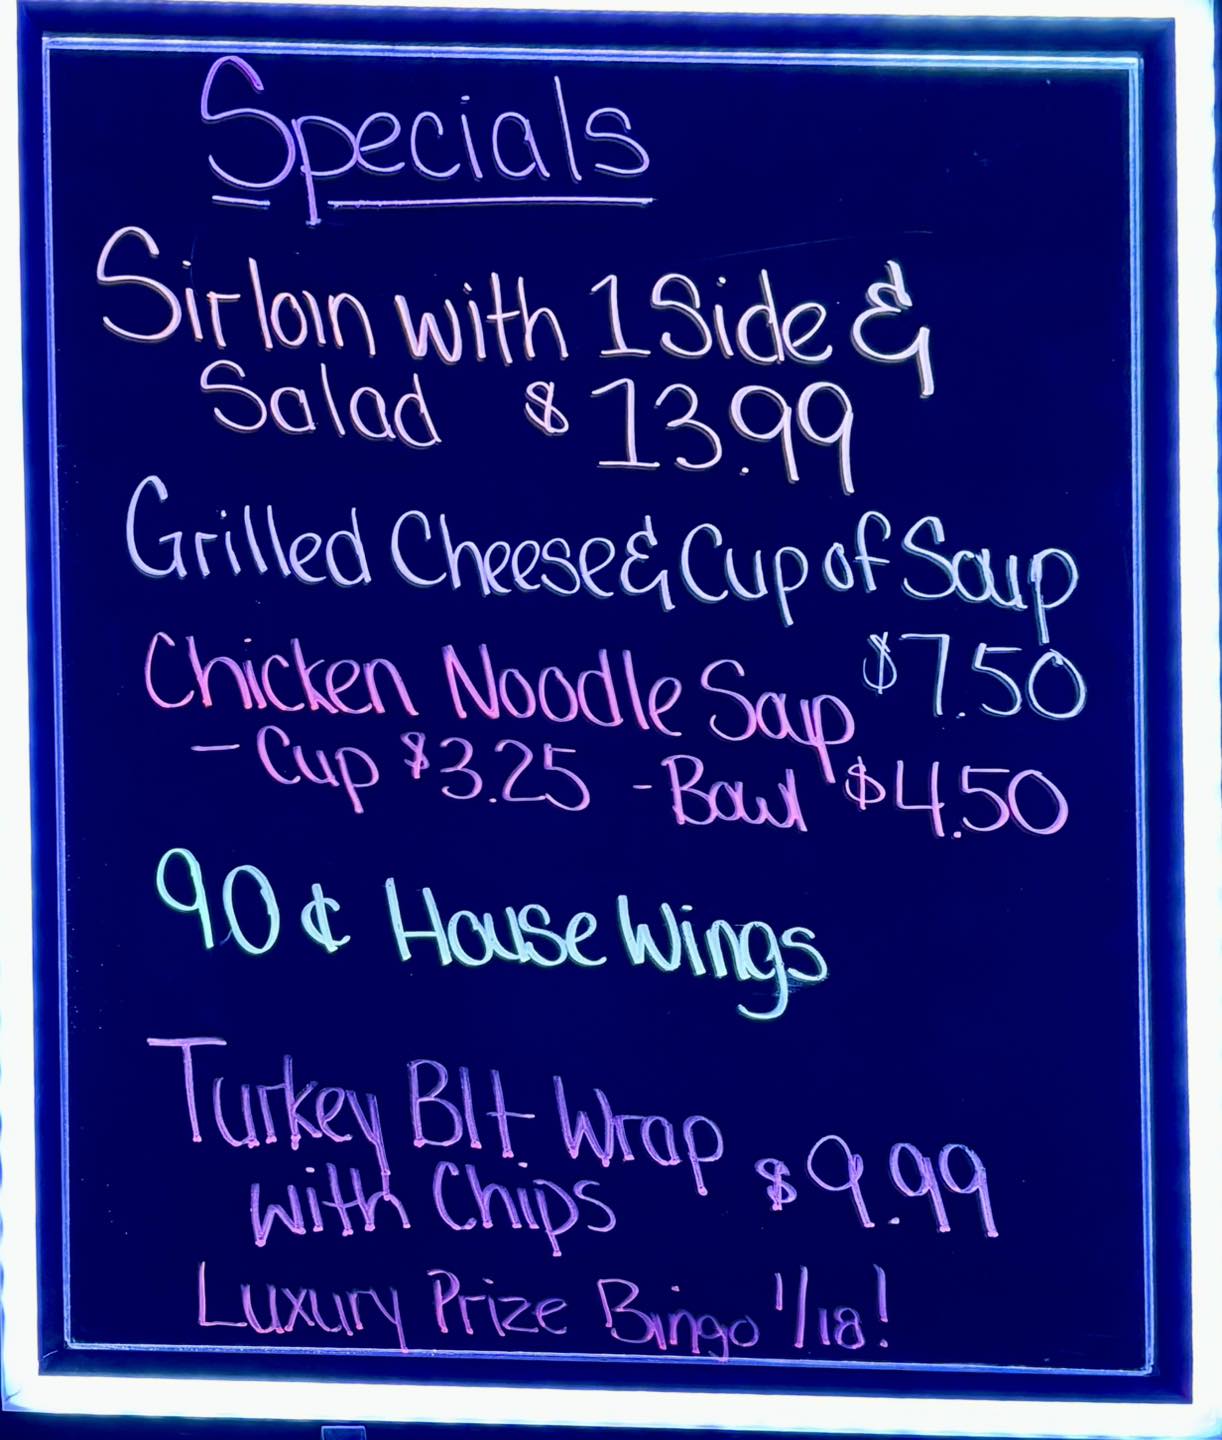 Specials
Sirloin with 1 Side &
Salad $13.99
Grilled Cheese & Cup of Soup
$7.50
Chicken Noodle Soup
- Cup $3.25 - Bowl $4.50
90¢ House Wings
Turkey Blt Wrap
with Chips $9.99
Luxury Prize Bingo 1/18!